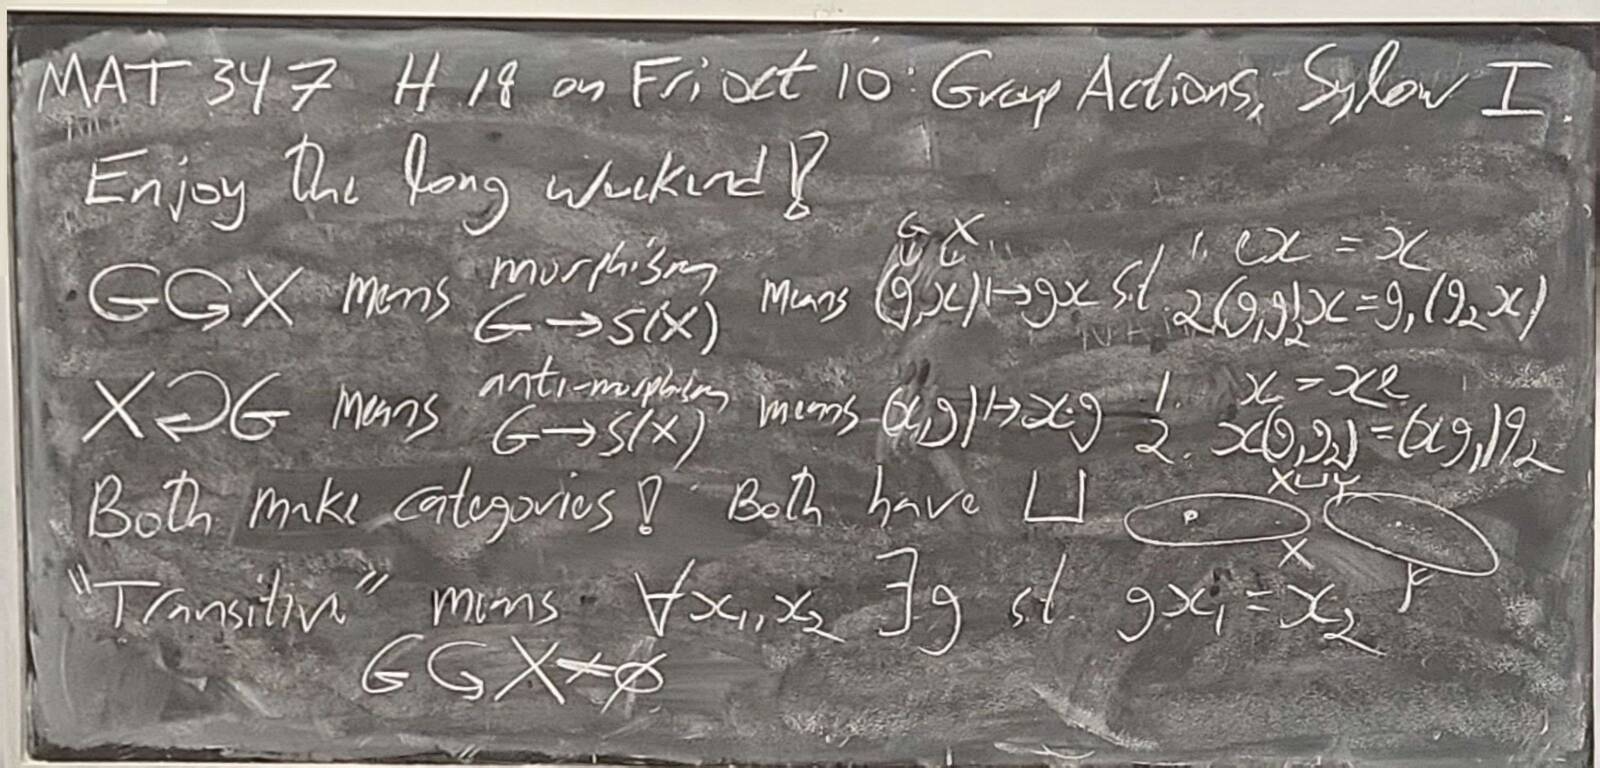 MAT 347 H 18 on Fri Oct 10: Group Actions, Sylow I.
Enjoy the long weekend!
G ↻ X means morphism G→S(X) means (g,x)↦gx s.t. 1. ex = x
G X
2. (g₁g₂)x = g₁(g₂x)
X ↻ G means anti-morphism G→S(X) means (x,g)↦x·g 1. x = xe
2. x(g₁g₂) = (xg₁)g₂
Both make categories! Both have ⊔ X⊔Y
X Y
"Transitive" means ∀x₁,x₂ ∃g s.t. gx₁ = x₂
G ↻ X ≠ ∅